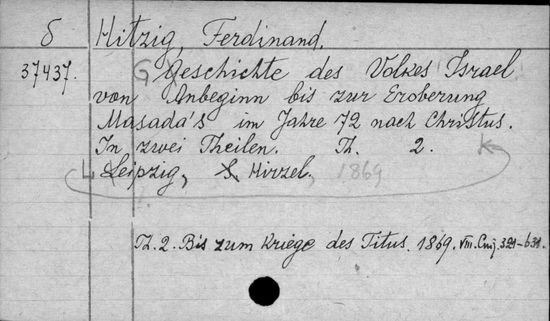 δ Hitzig, Ferdinand.
37437. G Geschichte des Volkes Israel
von Anbeginn bis zur Eroberung
Masada's im Jahre 72 nach Christus.
In zwei Theilen. Th. 2.
L Leipzig, S. Hirzel, 1869
Th. 2. Bis zum Kriege des Titus. 1869. VIII. 321-631.